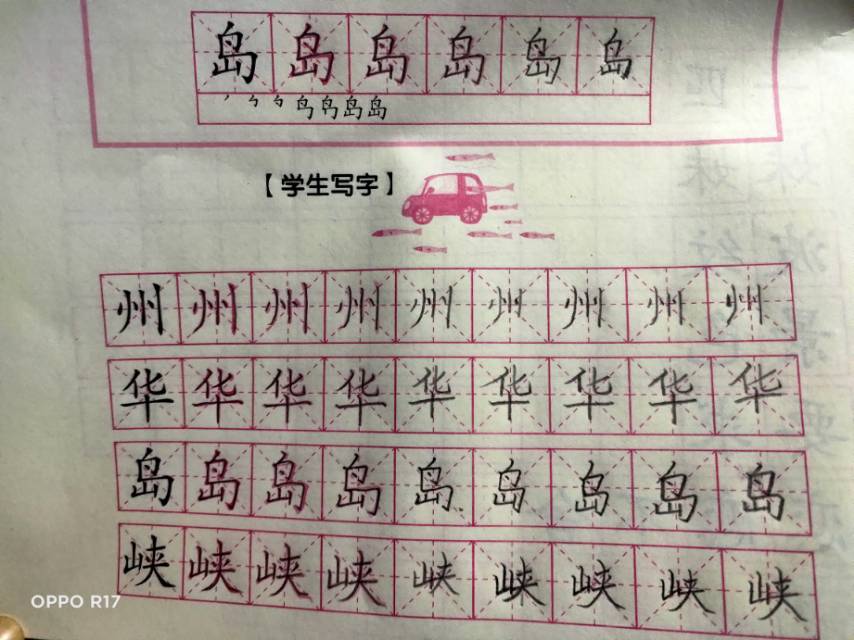 岛岛岛岛岛岛
【学生写字】
州州州州州州州州州
华华华华华华华华华
岛岛岛岛岛岛岛岛岛
峡峡峡峡峡峡峡峡峡
OPPO R17